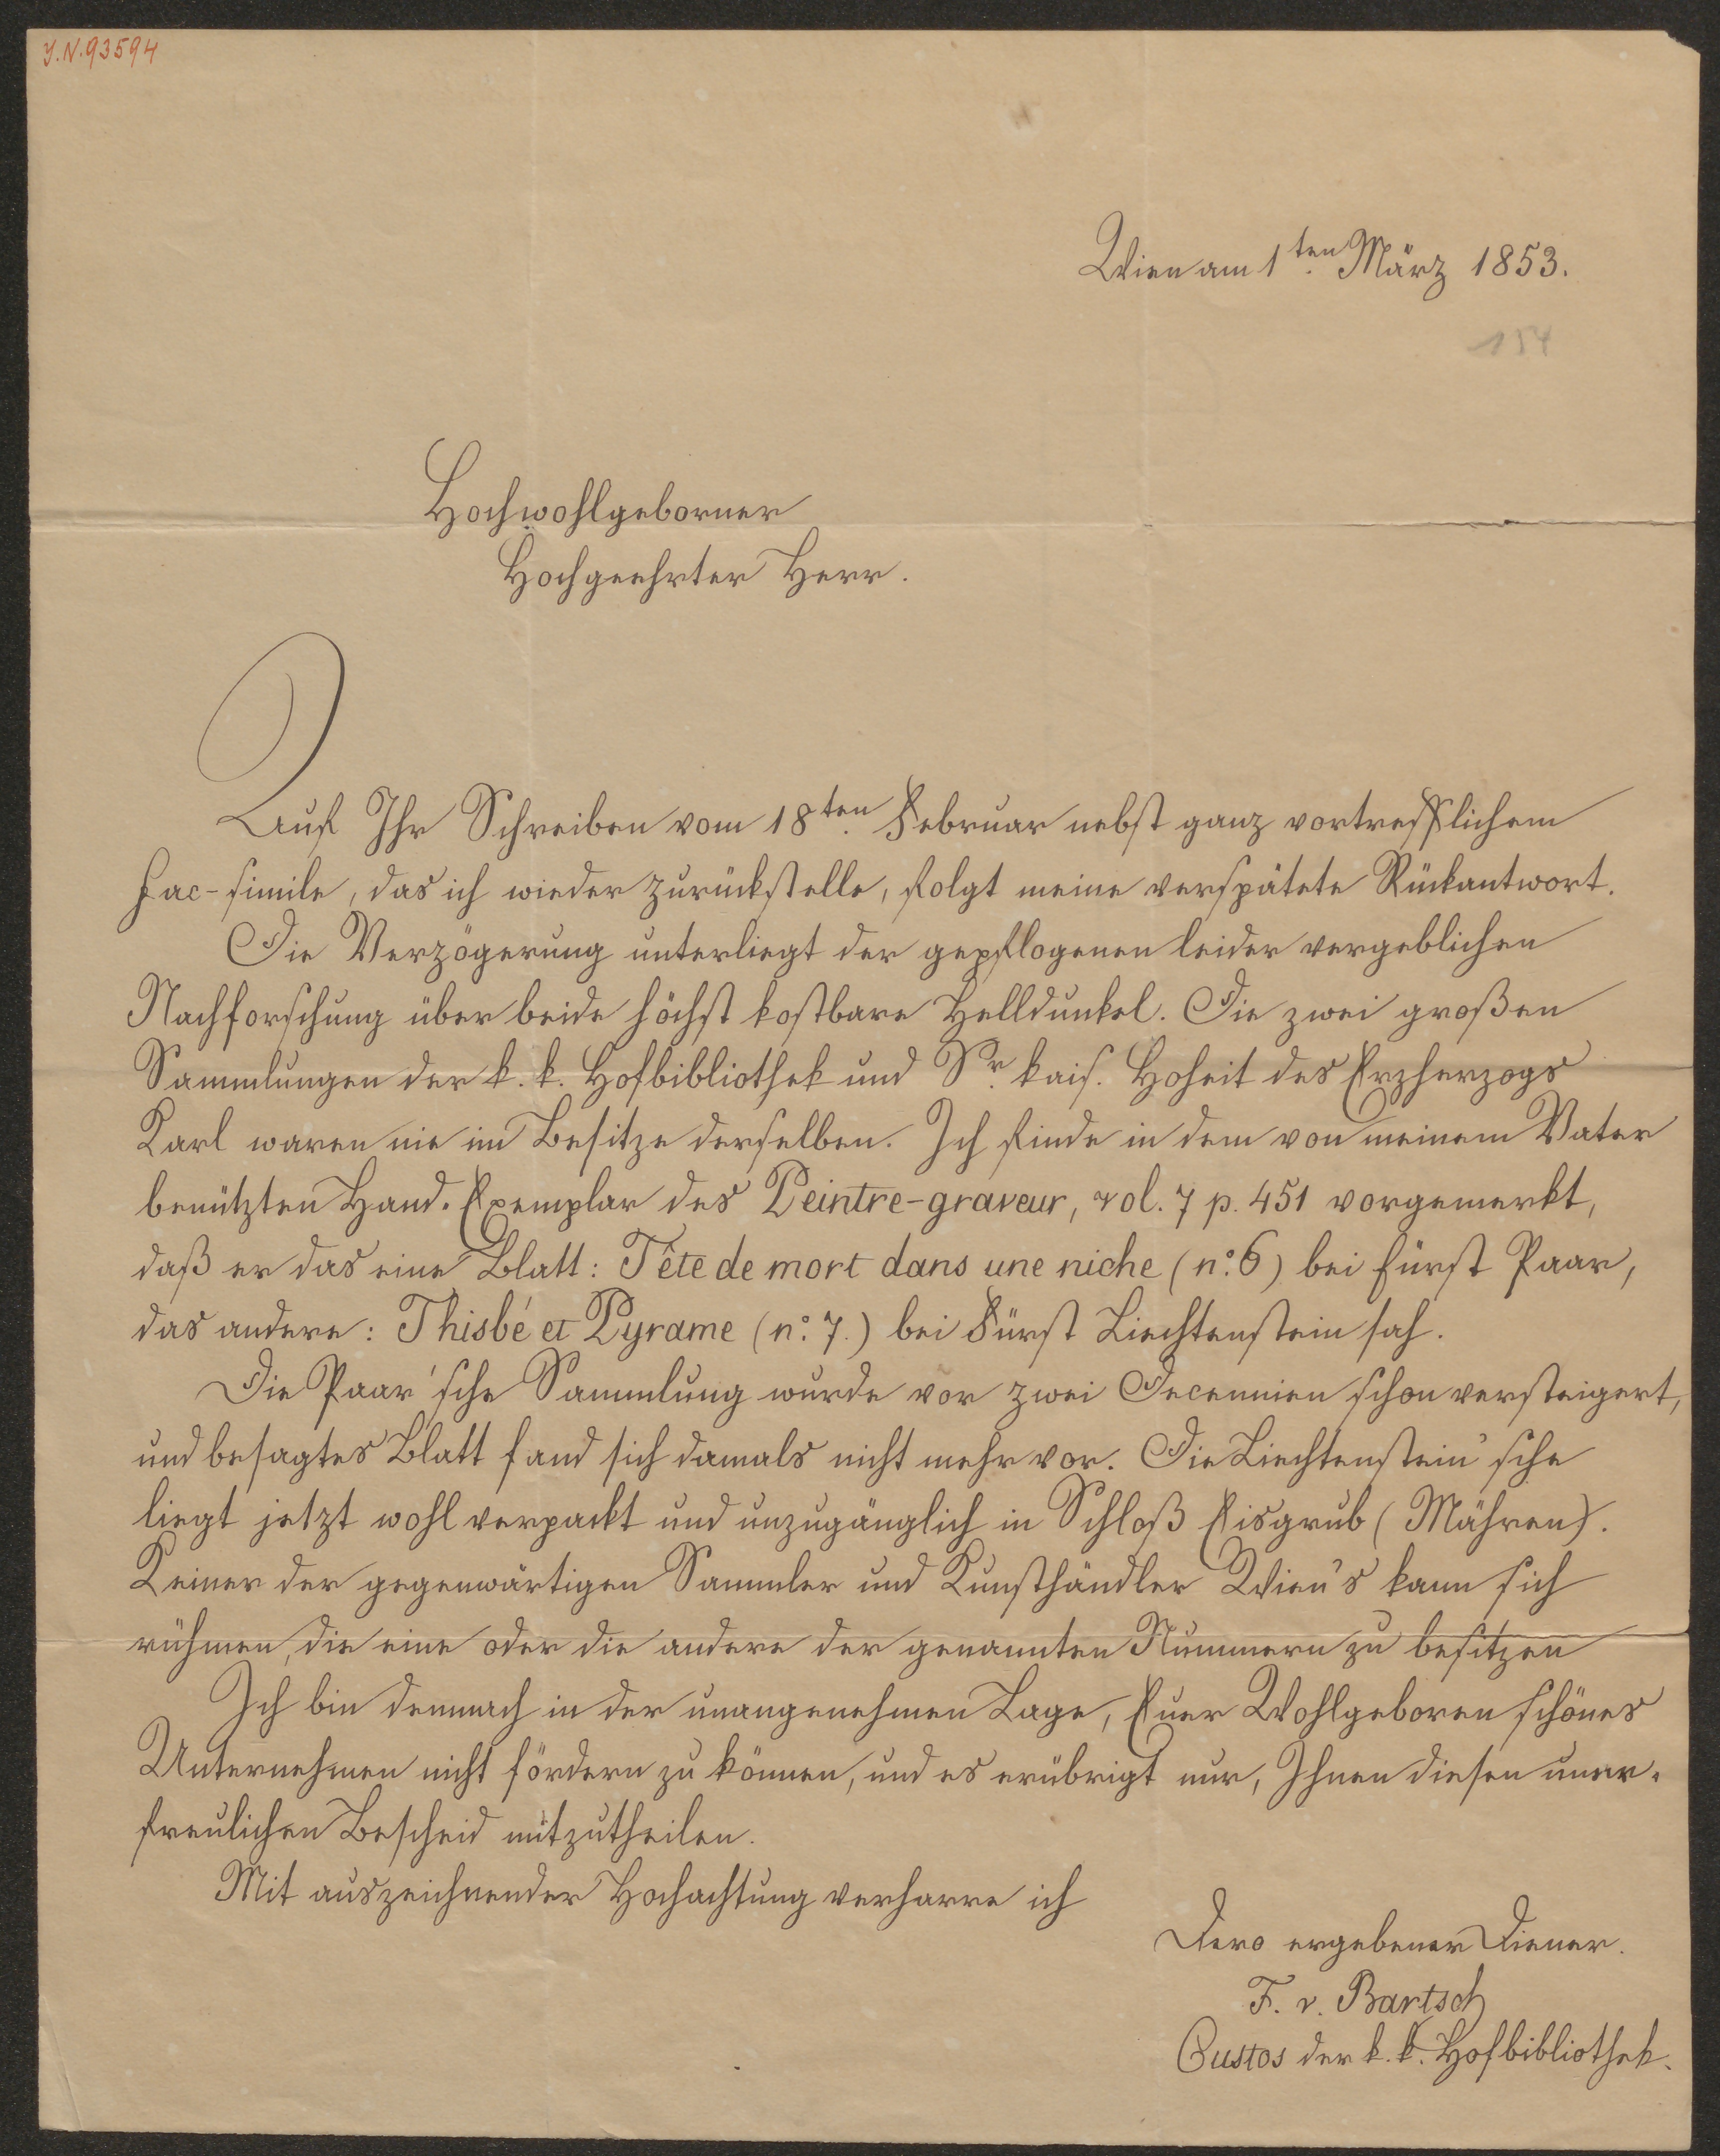 J.N.93594
Wien am 1ten März 1853.
154
Hochwohlgeborner
Hochgeehrter Herr.
Auf Ihr Schreiben vom 18ten Februar nebst ganz vortrefflichem
Fac-simile, das ich wieder zurückstelle, folgt meine verspätete Rückantwort.
Die Verzögerung unterliegt der gepflogenen leider vergeblichen
Nachforschung über beide höchst kostbare Helldunkel. Die zwei großen
Sammlungen der k. k. Hofbibliothek und Sr. kais. Hoheit des Erzherzogs
Karl waren nie im Besitze derselben. Ich finde in dem von meinem Vater
benützten Hand-Exemplar des Peintre-graveur, vol. 7 p. 451 vorgemerkt,
daß er das eine Blatt: Tête de mort dans une niche (n.° 6) bei Fürst Paar,
das andere: Thisbé et Pyrame (n.° 7.) bei Fürst Liechtenstein sah.
Die Paar'sche Sammlung wurde vor zwei Decennien schon versteigert,
und besagtes Blatt fand sich damals nicht mehr vor. Die Liechtenstein'sche
liegt jetzt wohl verpackt und unzugänglich in Schloß Eisgrub (Mähren).
Keiner der gegenwärtigen Sammler und Kunsthändler Wien's kann sich
rühmen, die eine oder die andere der genannten Nummern zu besitzen
Ich bin demnach in der unangenehmen Lage, Euer Wohlgeboren schönes
Unternehmen nicht fördern zu können, und es erübrigt nur, Ihnen diesen uner-
freulichen Bescheid mitzutheilen.
Mit auszeichnender Hochachtung verharre ich
Dero ergebener Diener.
F. v. Bartsch
Custos der k. k. Hofbibliothek.